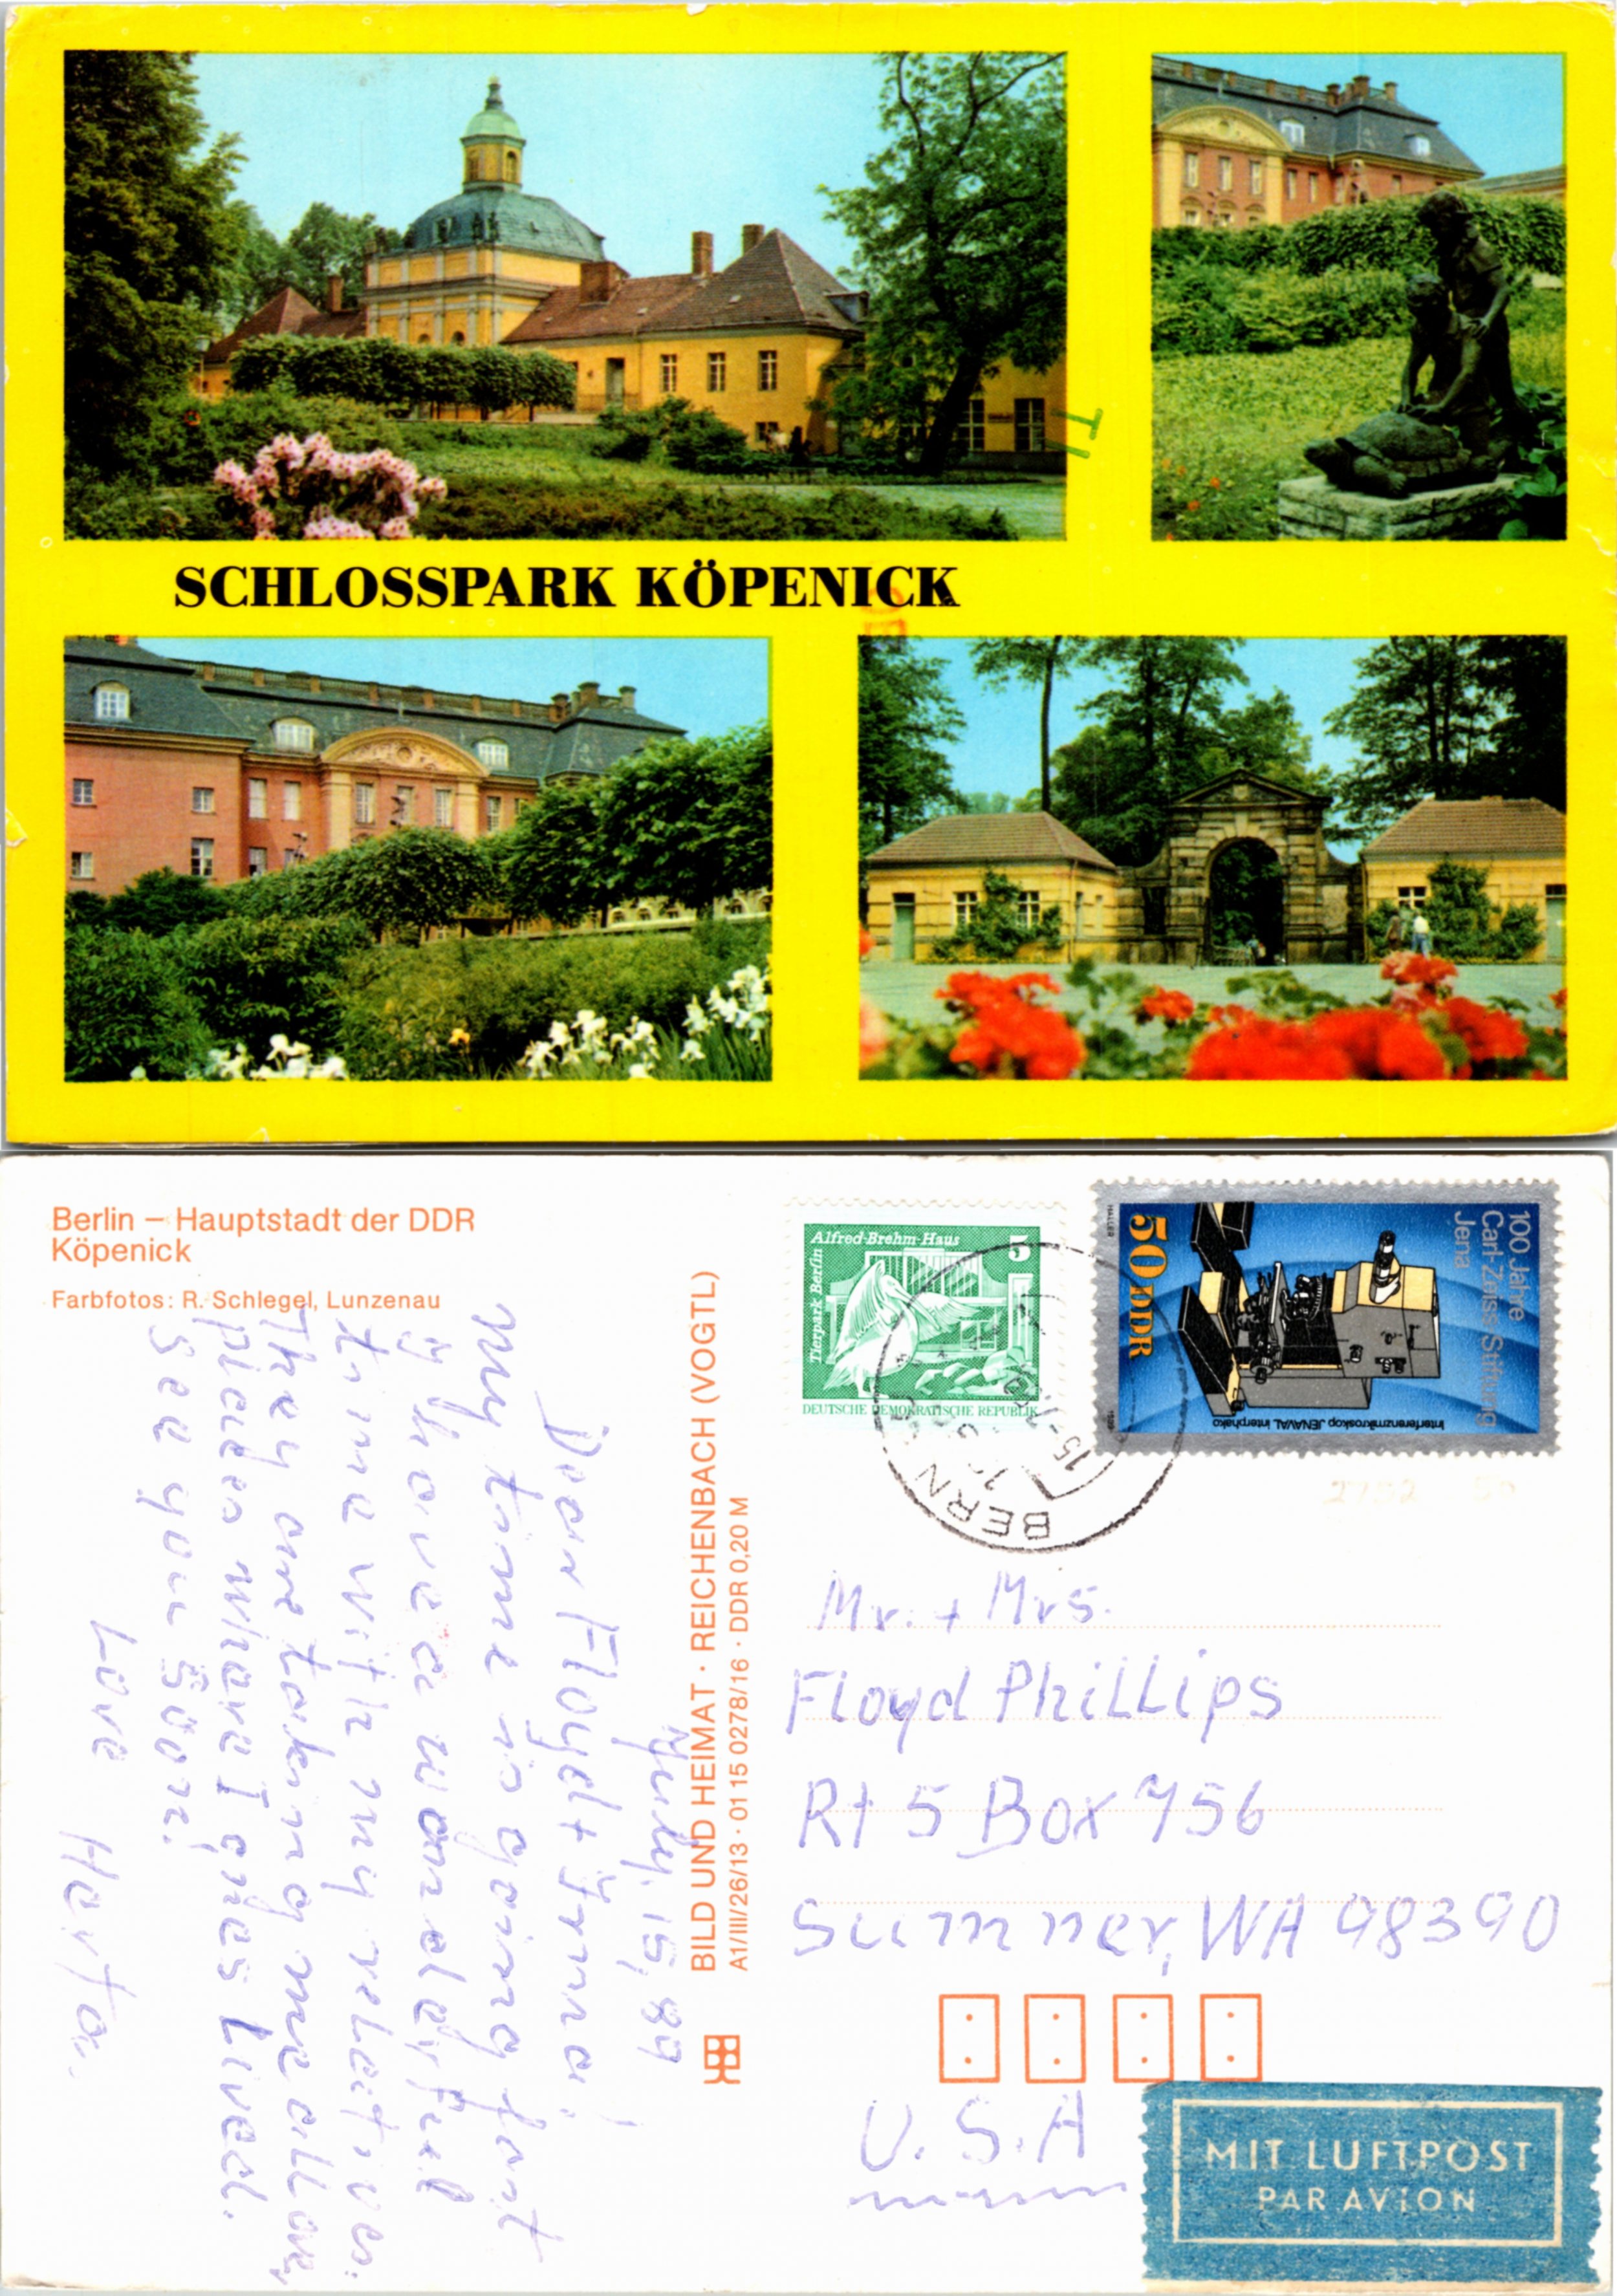 SCHLOSSPARK KÖPENICK
Berlin – Hauptstadt der DDR
Köpenick
Farbfotos: R. Schlegel, Lunzenau
July, 15, 89
Dear Floyd + Irma!
My time is going fast
I have a wonderful
time with my relatives.
They are taking me all over,
places where I ones Lived.
See you Soon.
Love Herta.
BILD UND HEIMAT · REICHENBACH (VOGTL)
A1/III/26/13 · 01 15 0278/16 · DDR 0,20 M
Alfred-Brehm-Haus 5
Tierpark Berlin
DEUTSCHE DEMOKRATISCHE REPUBLIK
100 Jahre
Carl-Zeiss-Stiftung
Jena
50 DDR
Interferenzmikroskop JENAVAL interphako
HALLER
1989
BERN
15
Mr. + Mrs.
Floyd Phillips
Rt 5 Box 756
Sumner, WA 98390
U.S.A
MIT LUFTPOST
PAR AVION